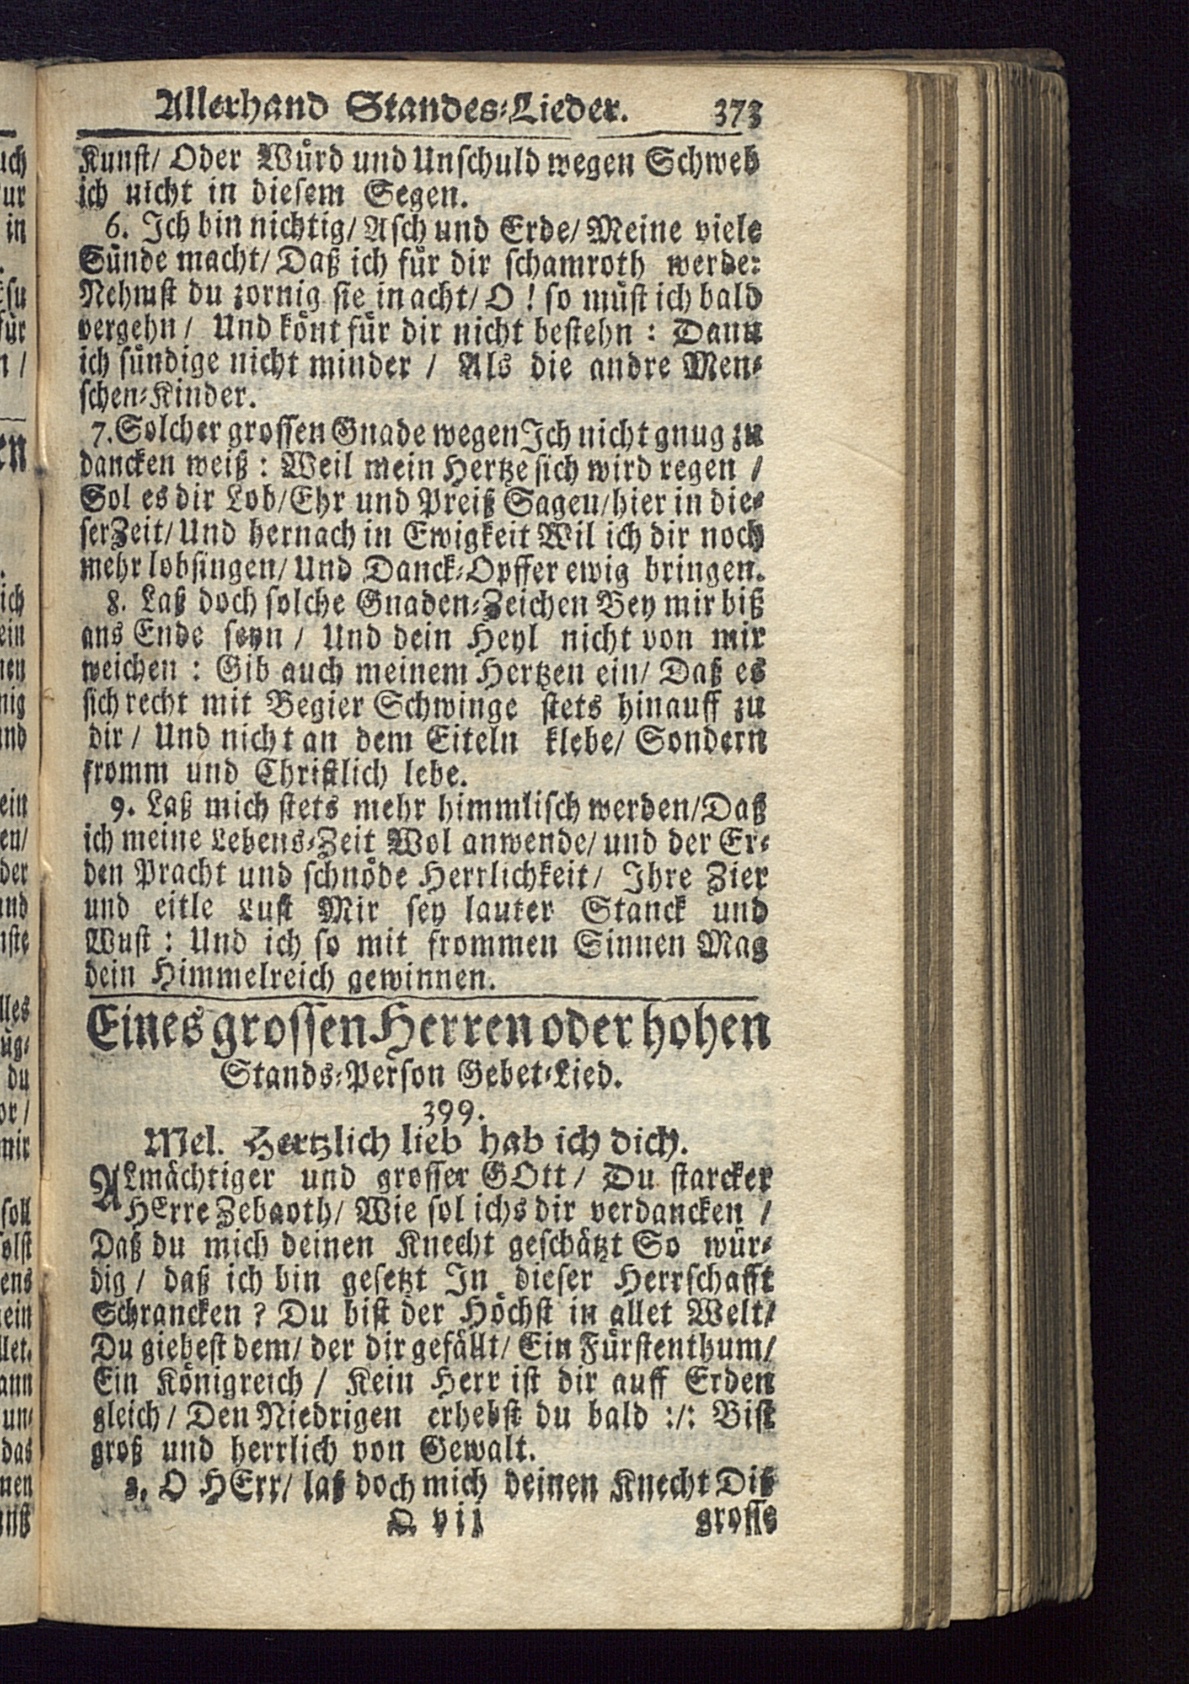 Allerhand Standes-Lieder. 373
Kunst/ Oder Würd und Unschuld wegen Schweb
ich nicht in diesem Segen.
6. Ich bin nichtig/ Asch und Erde/ Meine viele
Sünde macht/ Daß ich für dir schamroth werde:
Nehmst du zornig sie in acht/ O ! so müst ich bald
vergehn / Und könt für dir nicht bestehn : Dann
ich sündige nicht minder / Als die andre Men-
schen-Kinder.
7. Solcher grossen Gnade wegen Ich nicht gnug zu
dancken weiß : Weil mein Hertze sich wird regen /
Sol es dir Lob/ Ehr und Preiß Sagen/ hier in die-
ser Zeit/ Und hernach in Ewigkeit Wil ich dir noch
mehr lobsingen/ Und Danck-Opffer ewig bringen.
8. Laß doch solche Gnaden-Zeichen Bey mir biß
ans Ende seyn / Und dein Heyl nicht von mir
weichen : Gib auch meinem Hertzen ein/ Daß es
sich recht mit Begier Schwinge stets hinauff zu
dir / Und nicht an dem Eiteln klebe/ Sondern
fromm und Christlich lebe.
9. Laß mich stets mehr himmlisch werden/ Daß
ich meine Lebens-Zeit Wol anwende/ und der Er-
den Pracht und schnöde Herrlichkeit/ Ihre Zier
und eitle Lust Mir sey lauter Stanck und
Wust : Und ich so mit frommen Sinnen Mag
dein Himmelreich gewinnen.
Eines grossen Herren oder hohen
Stands-Person Gebet-Lied.
399.
Mel. Hertzlich lieb hab ich dich.
ALmächtiger und grosser GOtt / Du starcker
HErre Zebaoth/ Wie sol ichs dir verdancken /
Daß du mich deinen Knecht geschätzt So wür-
dig / daß ich bin gesetzt In dieser Herrschafft
Schrancken ? Du bist der Höchst in allet Welt/
Du giebest dem/ der dir gefällt/ Ein Fürstenthum/
Ein Königreich / Kein Herr ist dir auff Erden
gleich / Den Niedrigen erhebst du bald :/: Bist
groß und herrlich von Gewalt.
2. O HErr/ laß doch mich deinen Knecht Diß
Q vij grosse